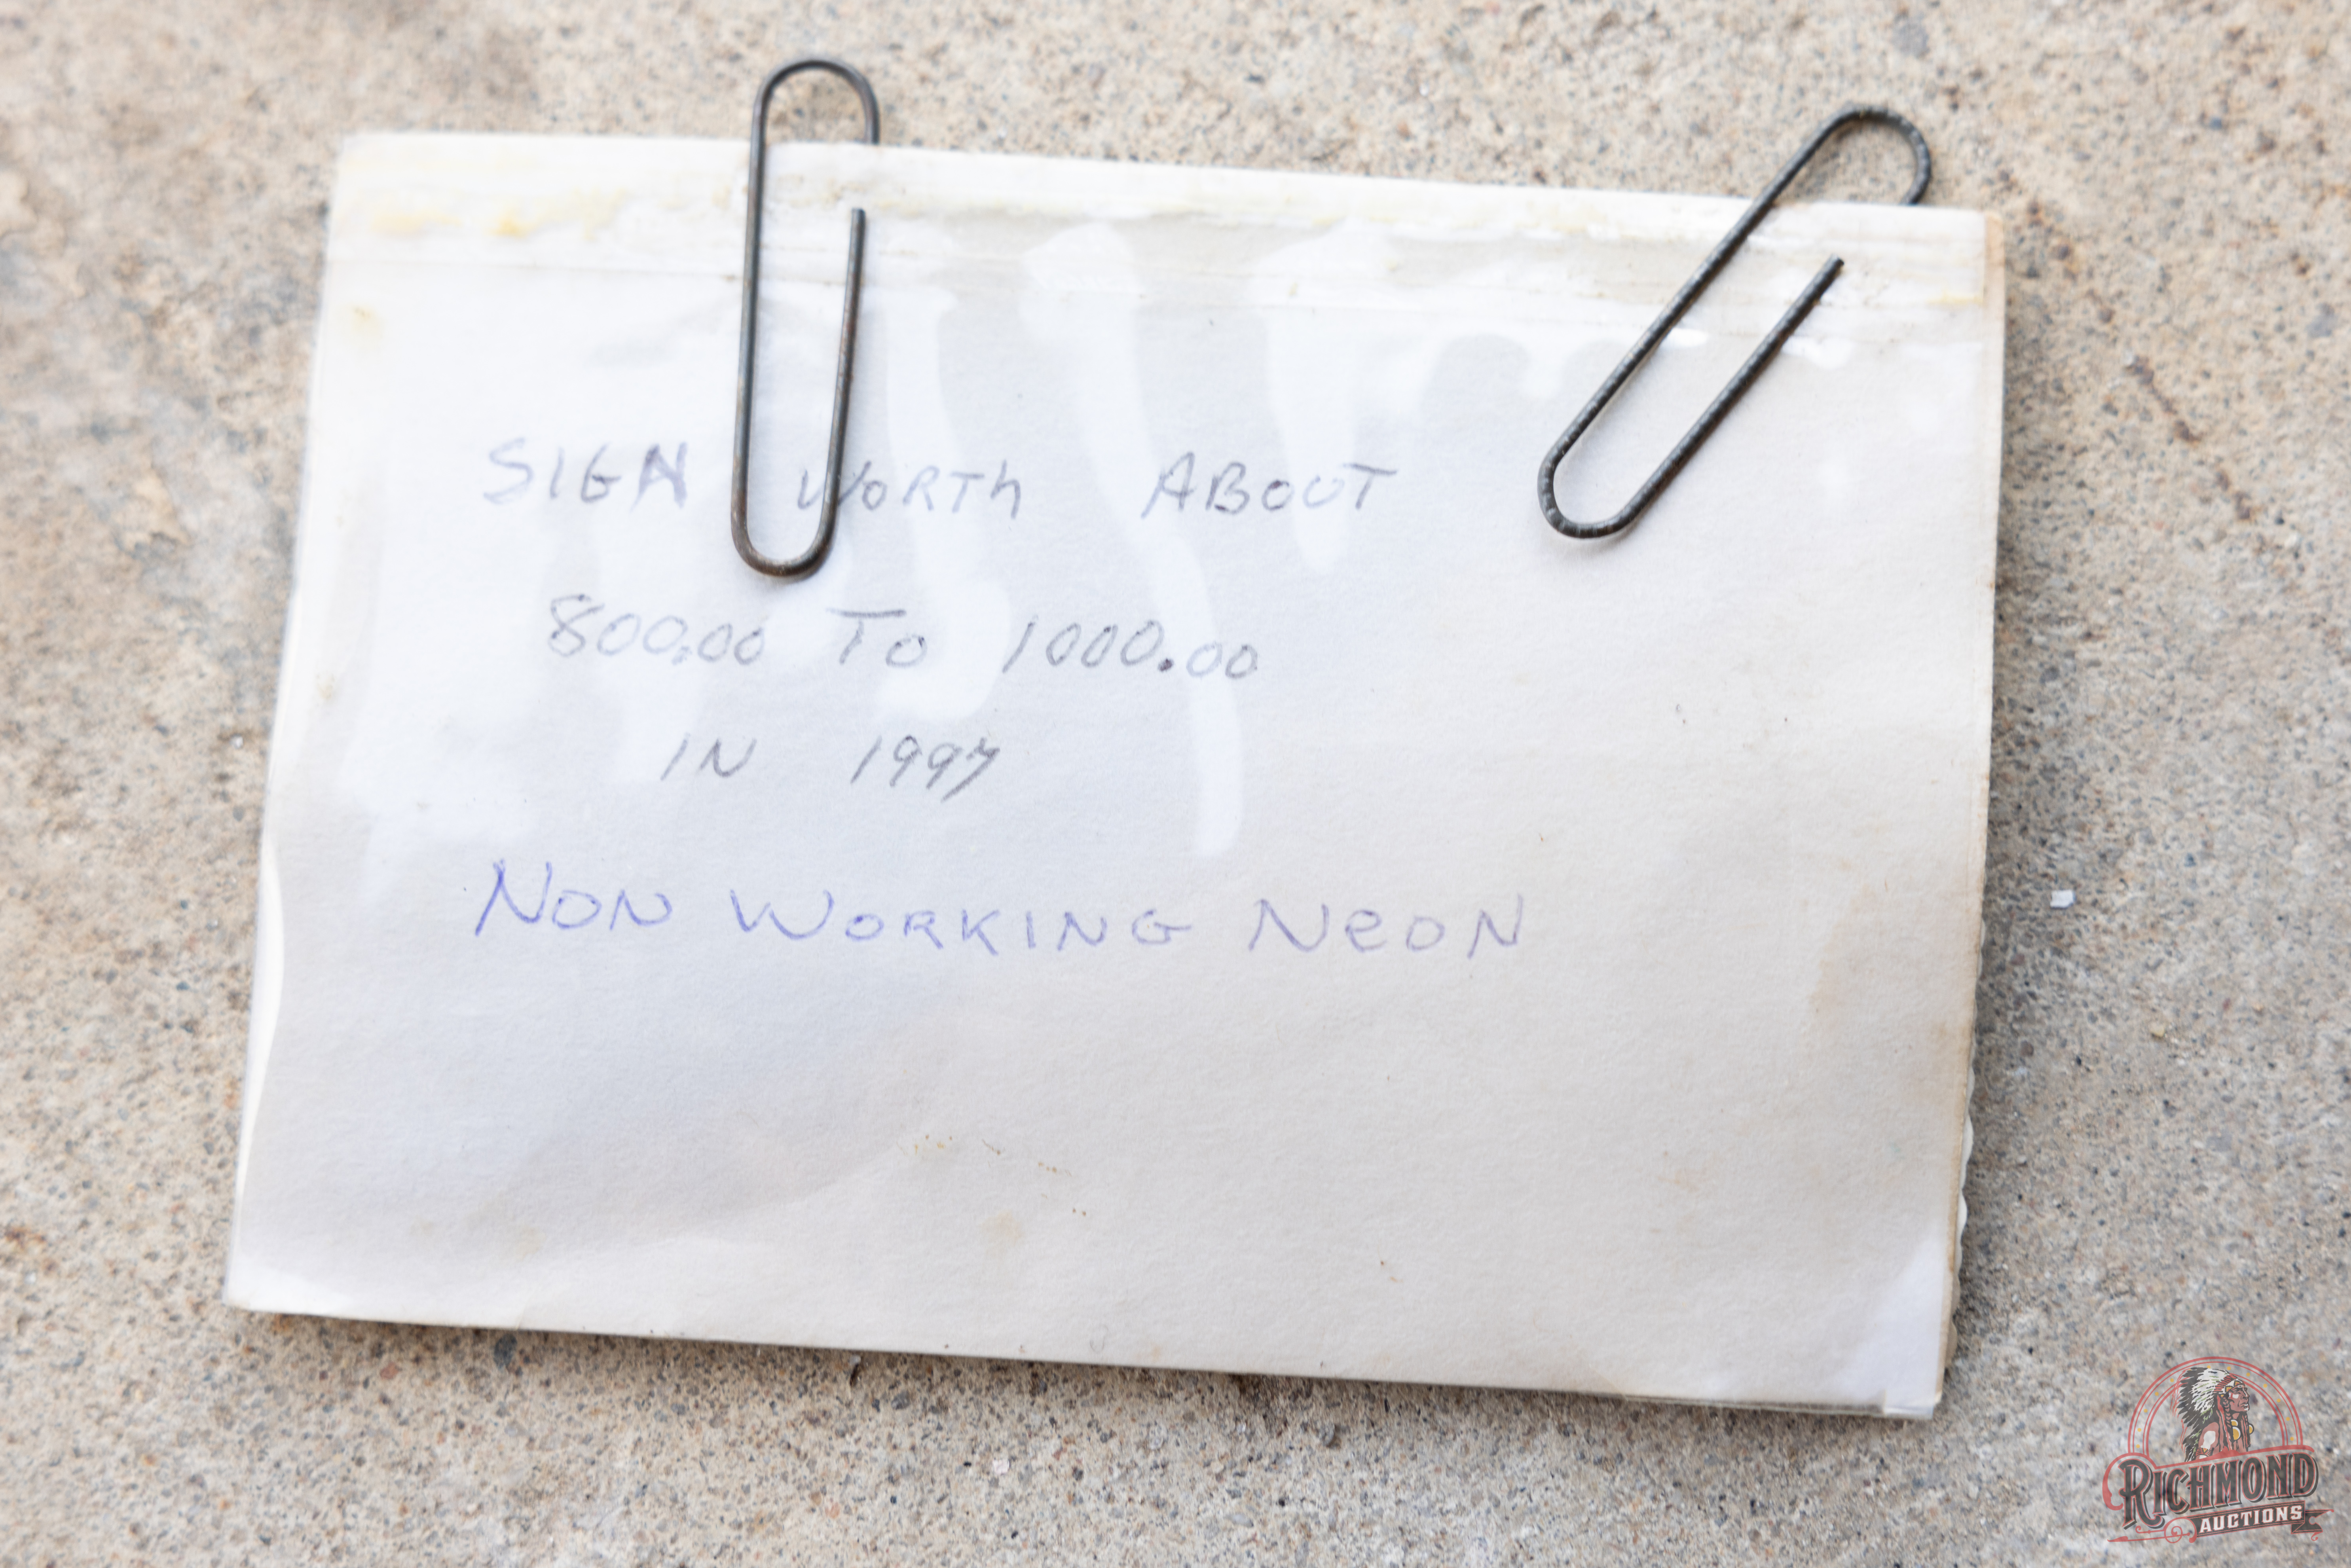 SIGN WORTh ABOUT
800.00 To 1000.00
IN 1997
NON WORKING NeON
RICHMOND
AUCTIONS